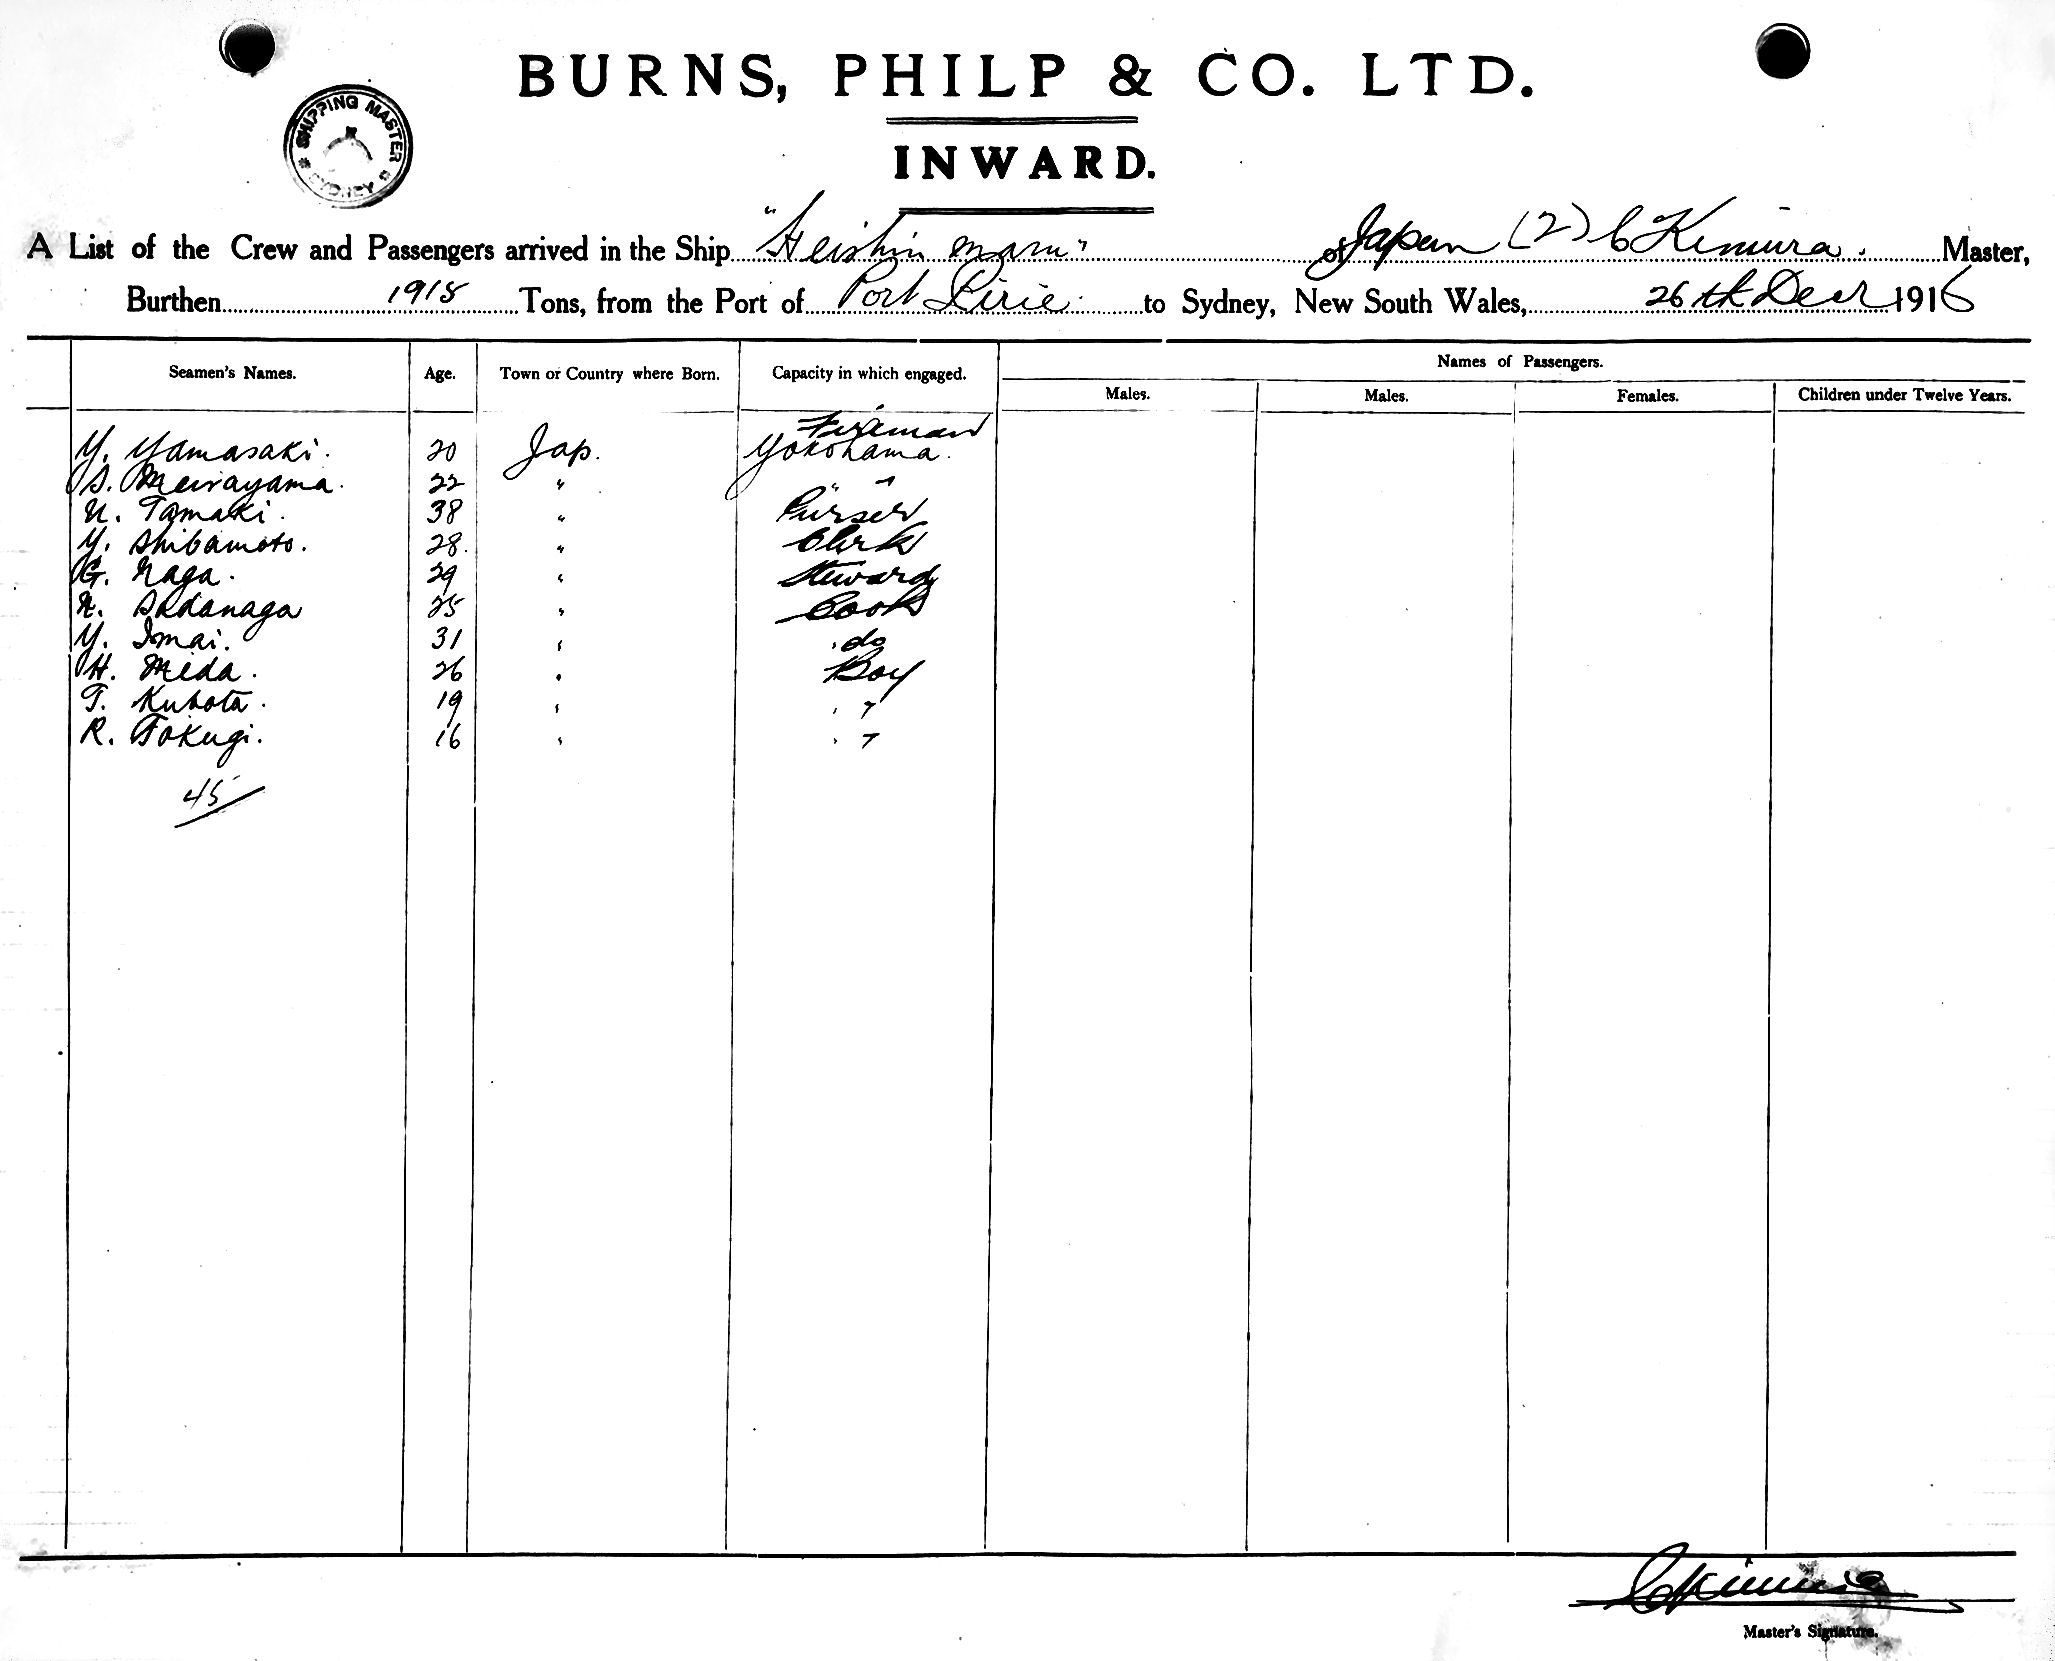 BURNS, PHILP & CO. LTD.
SHIPPING MASTER
SYDNEY
INWARD.
A List of the Crew and Passengers arrived in the Ship "Heishin Maru" of Japan (2) C Kimura. Master,
Burthen 1918 Tons, from the Port of Port Pirie. to Sydney, New South Wales, 26th Decr 1916
Names of Passengers.
Seamen's Names. Age. Town or Country where Born. Capacity in which engaged. Males. Males. Females. Children under Twelve Years.
Fireman
Y. Yamasaki. 20 Jap. Yokohama.
S. Murayama. 22 " " "
N. Tamaki. 38 " Purser
Y. Shibamoto. 28. " Clerk
G. Naga. 29 " Steward
K. Sadanaga 25 " Cook
Y. Imai. 31 " do
H. Mida. 26 " Boy
T. Kubota. 19 " "
R. Tokugi. 16 " "
45
C Kimura
Master's Signature.